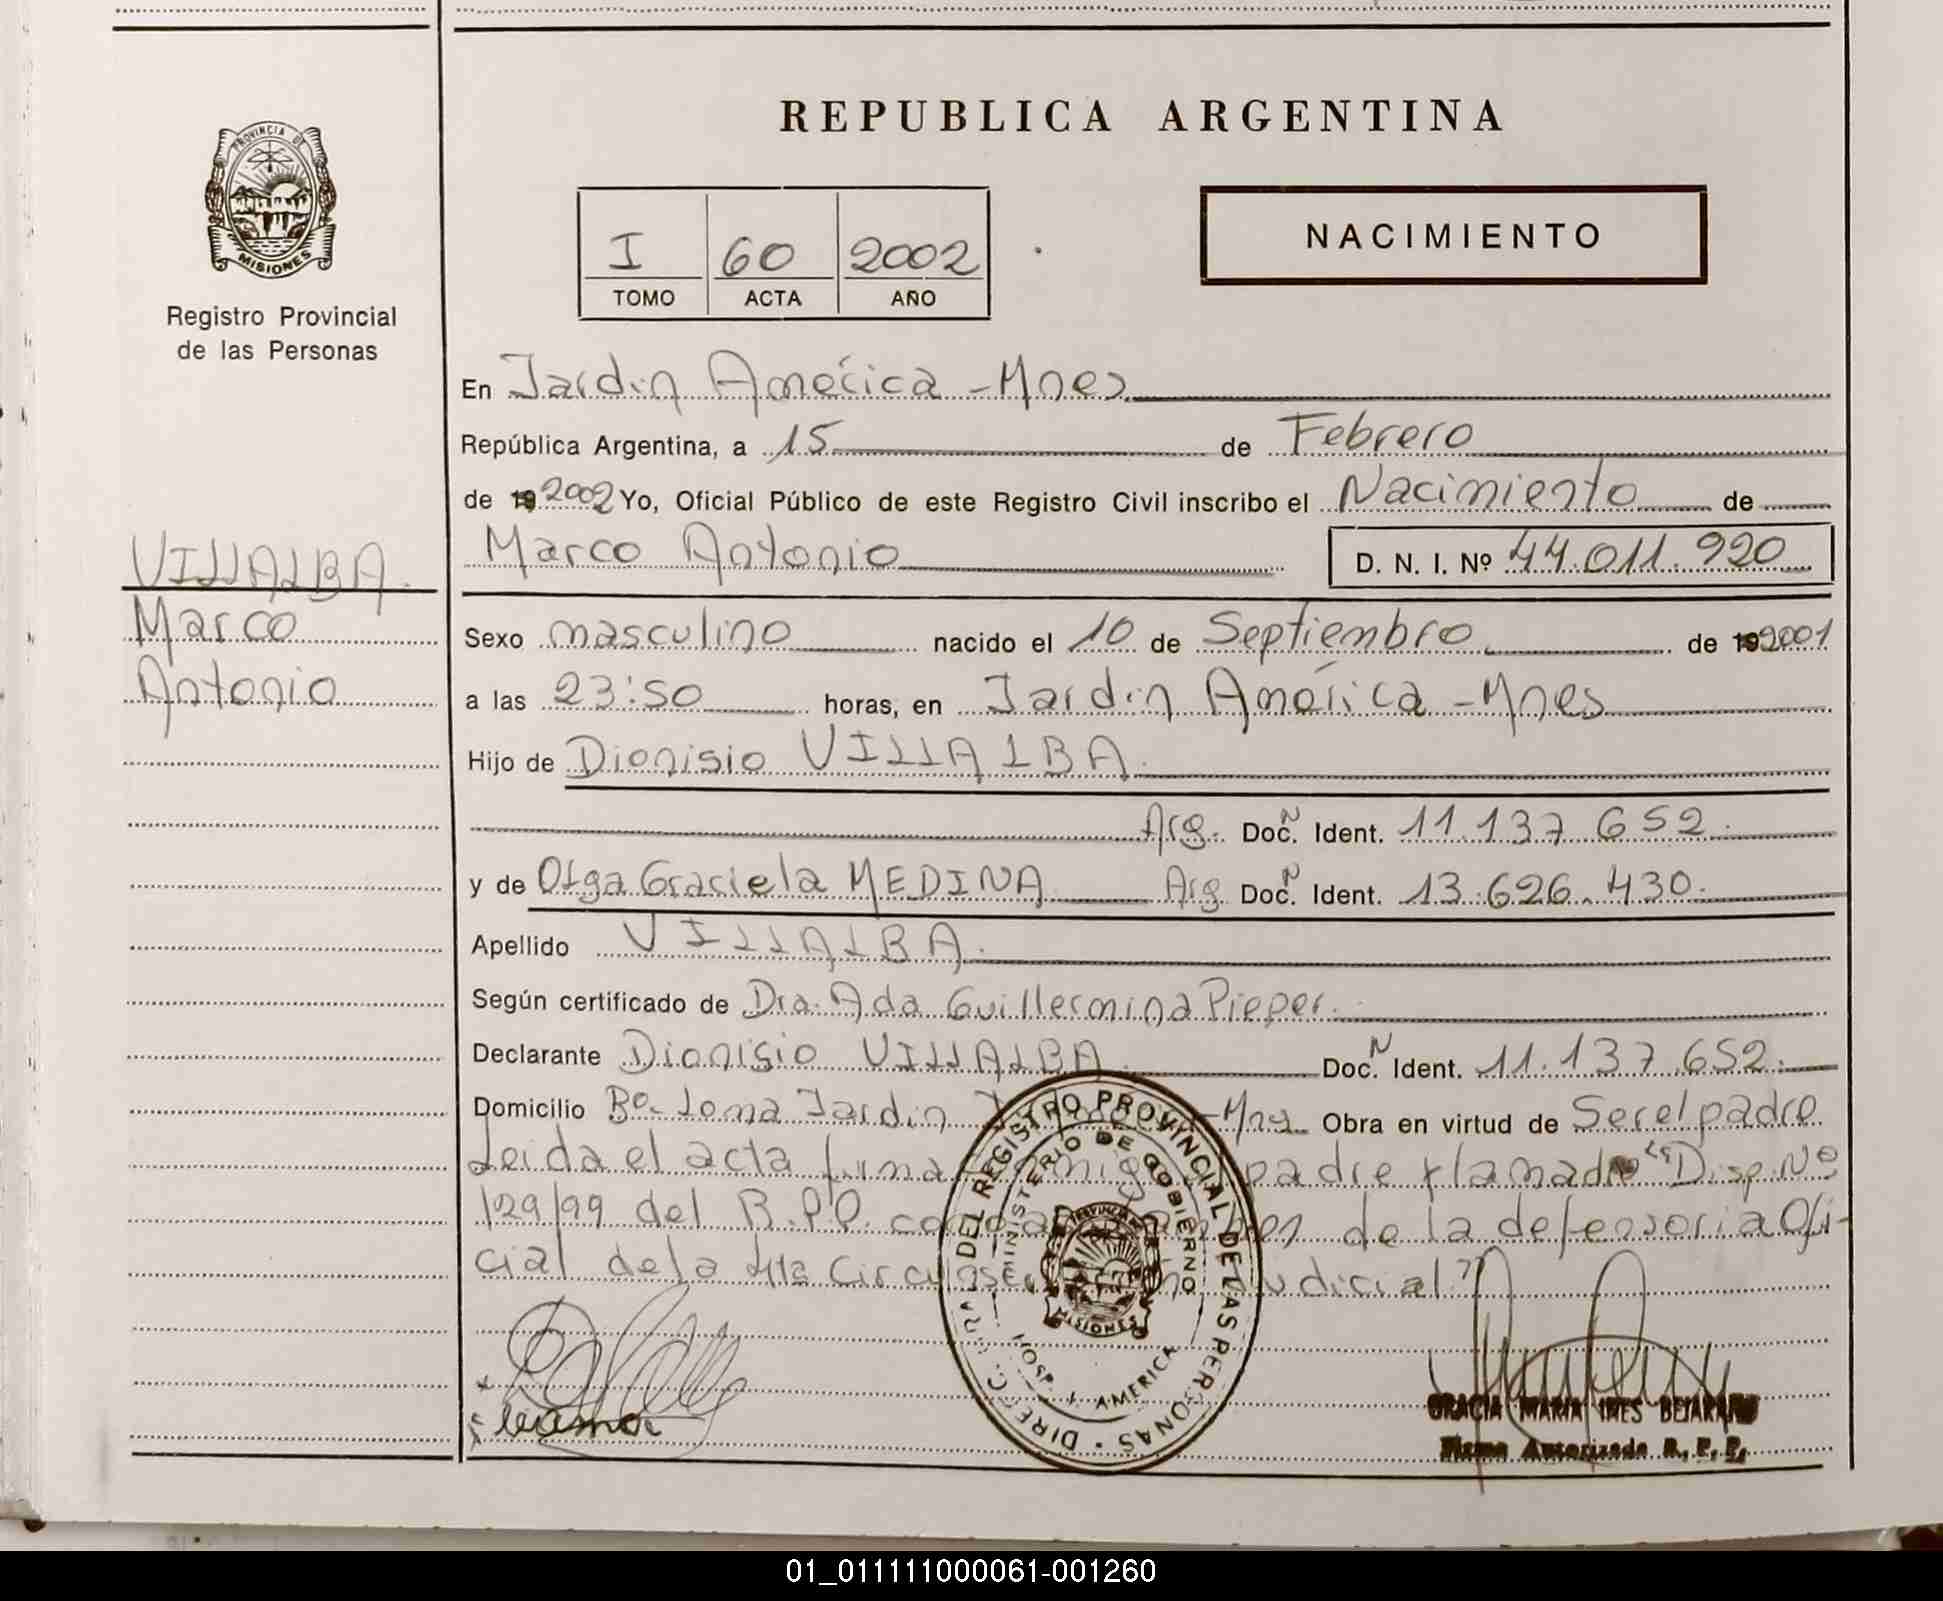 REPUBLICA ARGENTINA
PROVINCIA DE
MISIONES
Registro Provincial
de las Personas
I 60 2002
TOMO ACTA AÑO
NACIMIENTO
En Jardin América - Mnes
República Argentina, a 15 de Febrero
de 19 2002 Yo, Oficial Público de este Registro Civil inscribo el Nacimiento de
Marco Antonio D. N. I. Nº 44.011.920
VILLALBA.
Marco
Antonio
Sexo masculino nacido el 10 de Septiembro de 19 2001
a las 23:50 horas, en Jardin América - Mnes
Hijo de Dionisio VILLALBA.
Arg. Doc. N Ident. 11.137.652.
y de Olga Graciela MEDINA Arg Doc. N Ident. 13.626.430.
Apellido VILLALBA.
Según certificado de Dra. Ada Guillermina Pieper.
Declarante Dionisio VILLALBA Doc. N Ident. 11.137.652.
Domicilio Bº. Loma Jardin - Mnes Obra en virtud de Ser el padre
Leida el acta padre y la madre "Disp. Nº
129/99 del R.P.P. de la defensoria Ofi-
cial de la 4ta Judicial"
DIREC. GRAL. DEL REGISTRO PROVINCIAL DE LAS PERSONAS
MINISTERIO DE GOBIERNO
PROVINCIA DE
MISIONES
HOSP. J. AMERICA
GRACIA MARIA INES BEJARANO
Firma Autorizada R. P. P.
01_011111000061-001260